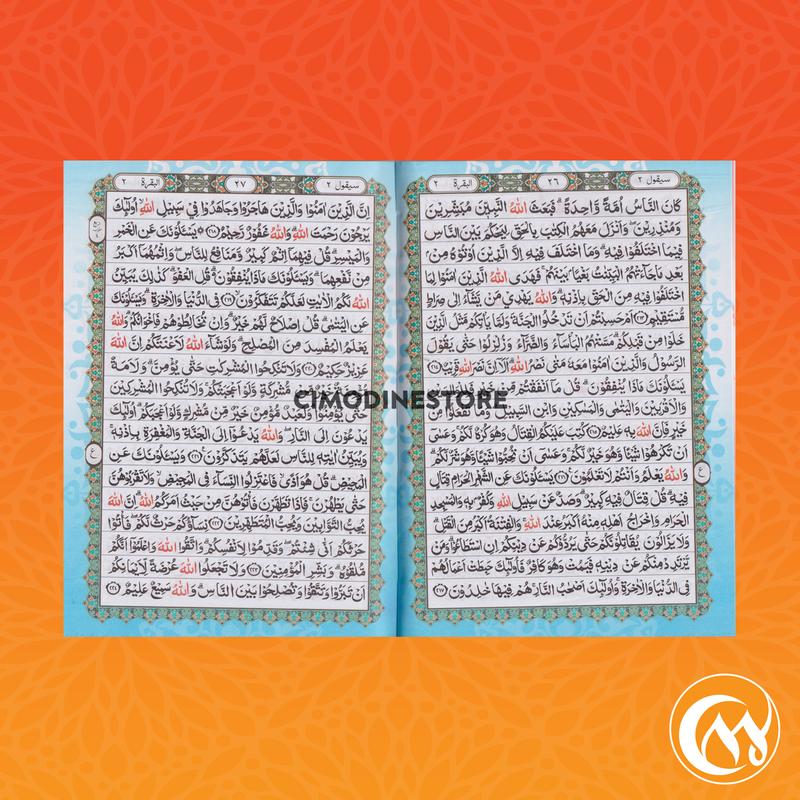 سيقول ٢ ٢٦ البقرة ٢
كَانَ النَّاسُ اُمَّةً وَّاحِدَةً ۗ فَبَعَثَ اللّٰهُ النَّبِيّٖنَ مُبَشِّرِيْنَ
وَمُنْذِرِيْنَ ۖ وَاَنْزَلَ مَعَهُمُ الْكِتٰبَ بِالْحَقِّ لِيَحْكُمَ بَيْنَ النَّاسِ
فِيْمَا اخْتَلَفُوْا فِيْهِ ۗ وَمَا اخْتَلَفَ فِيْهِ اِلَّا الَّذِيْنَ اُوْتُوْهُ مِنْۢ
بَعْدِ مَا جَاۤءَتْهُمُ الْبَيِّنٰتُ بَغْيًاۢ بَيْنَهُمْ ۚ فَهَدَى اللّٰهُ الَّذِيْنَ اٰمَنُوْا لِمَا
اخْتَلَفُوْا فِيْهِ مِنَ الْحَقِّ بِاِذْنِهٖ ۗ وَاللّٰهُ يَهْدِيْ مَنْ يَّشَاۤءُ اِلٰى صِرَاطٍ
مُّسْتَقِيْمٍ ﴿٢١٣﴾ اَمْ حَسِبْتُمْ اَنْ تَدْخُلُوا الْجَنَّةَ وَلَمَّا يَأْتِكُمْ مَّثَلُ الَّذِيْنَ
خَلَوْا مِنْ قَبْلِكُمْ ۗ مَسَّتْهُمُ الْبَأْسَاۤءُ وَالضَّرَّاۤءُ وَزُلْزِلُوْا حَتّٰى يَقُوْلَ
الرَّسُوْلُ وَالَّذِيْنَ اٰمَنُوْا مَعَهٗ مَتٰى نَصْرُ اللّٰهِ ۗ اَلَآ اِنَّ نَصْرَ اللّٰهِ قَرِيْبٌ ﴿٢١٤﴾
يَسْـَٔلُوْنَكَ مَاذَا يُنْفِقُوْنَ ۗ قُلْ مَآ اَنْفَقْتُمْ مِّنْ خَيْرٍ فَلِلْوَالِدَيْنِ
وَالْاَقْرَبِيْنَ وَالْيَتٰمٰى وَالْمَسٰكِيْنِ وَابْنِ السَّبِيْلِ ۗ وَمَا تَفْعَلُوْا مِنْ
خَيْرٍ فَاِنَّ اللّٰهَ بِهٖ عَلِيْمٌ ﴿٢١٥﴾ كُتِبَ عَلَيْكُمُ الْقِتَالُ وَهُوَ كُرْهٌ لَّكُمْ ۚ وَعَسٰٓى
اَنْ تَكْرَهُوْا شَيْـًٔا وَّهُوَ خَيْرٌ لَّكُمْ ۚ وَعَسٰٓى اَنْ تُحِبُّوْا شَيْـًٔا وَّهُوَ شَرٌّ لَّكُمْ ۗ
وَاللّٰهُ يَعْلَمُ وَاَنْتُمْ لَا تَعْلَمُوْنَ ﴿٢١٦﴾ يَسْـَٔلُوْنَكَ عَنِ الشَّهْرِ الْحَرَامِ قِتَالٍ
فِيْهِ ۗ قُلْ قِتَالٌ فِيْهِ كَبِيْرٌ ۗ وَصَدٌّ عَنْ سَبِيْلِ اللّٰهِ وَكُفْرٌۢ بِهٖ وَالْمَسْجِدِ
الْحَرَامِ وَاِخْرَاجُ اَهْلِهٖ مِنْهُ اَكْبَرُ عِنْدَ اللّٰهِ ۚ وَالْفِتْنَةُ اَكْبَرُ مِنَ الْقَتْلِ ۗ
وَلَا يَزَالُوْنَ يُقَاتِلُوْنَكُمْ حَتّٰى يَرُدُّوْكُمْ عَنْ دِيْنِكُمْ اِنِ اسْتَطَاعُوْا ۗ وَمَنْ
يَّرْتَدِدْ مِنْكُمْ عَنْ دِيْنِهٖ فَيَمُتْ وَهُوَ كَافِرٌ فَاُولٰۤىِٕكَ حَبِطَتْ اَعْمَالُهُمْ
فِى الدُّنْيَا وَالْاٰخِرَةِ ۚ وَاُولٰۤىِٕكَ اَصْحٰبُ النَّارِ ۚ هُمْ فِيْهَا خٰلِدُوْنَ ﴿٢١٧﴾
ع
سيقول ٢ ٢٧ البقرة ٢
اِنَّ الَّذِيْنَ اٰمَنُوْا وَالَّذِيْنَ هَاجَرُوْا وَجَاهَدُوْا فِيْ سَبِيْلِ اللّٰهِ ۙ اُولٰۤىِٕكَ
يَرْجُوْنَ رَحْمَتَ اللّٰهِ ۗ وَاللّٰهُ غَفُوْرٌ رَّحِيْمٌ ﴿٢١٨﴾ ۞ يَسْـَٔلُوْنَكَ عَنِ الْخَمْرِ
وَالْمَيْسِرِ ۗ قُلْ فِيْهِمَآ اِثْمٌ كَبِيْرٌ وَّمَنَافِعُ لِلنَّاسِ ۖ وَاِثْمُهُمَآ اَكْبَرُ
مِنْ نَّفْعِهِمَا ۗ وَيَسْـَٔلُوْنَكَ مَاذَا يُنْفِقُوْنَ ۗ قُلِ الْعَفْوَ ۗ كَذٰلِكَ يُبَيِّنُ
اللّٰهُ لَكُمُ الْاٰيٰتِ لَعَلَّكُمْ تَتَفَكَّرُوْنَ ﴿٢١٩﴾ فِى الدُّنْيَا وَالْاٰخِرَةِ ۗ وَيَسْـَٔلُوْنَكَ
عَنِ الْيَتٰمٰى ۗ قُلْ اِصْلَاحٌ لَّهُمْ خَيْرٌ ۗ وَاِنْ تُخَالِطُوْهُمْ فَاِخْوَانُكُمْ ۗ وَاللّٰهُ
يَعْلَمُ الْمُفْسِدَ مِنَ الْمُصْلِحِ ۗ وَلَوْ شَاۤءَ اللّٰهُ لَاَعْنَتَكُمْ ۗ اِنَّ اللّٰهَ
عَزِيْزٌ حَكِيْمٌ ﴿٢٢٠﴾ وَلَا تَنْكِحُوا الْمُشْرِكٰتِ حَتّٰى يُؤْمِنَّ ۗ وَلَاَمَةٌ
مُّؤْمِنَةٌ خَيْرٌ مِّنْ مُّشْرِكَةٍ وَّلَوْ اَعْجَبَتْكُمْ ۚ وَلَا تُنْكِحُوا الْمُشْرِكِيْنَ
حَتّٰى يُؤْمِنُوْا ۗ وَلَعَبْدٌ مُّؤْمِنٌ خَيْرٌ مِّنْ مُّشْرِكٍ وَّلَوْ اَعْجَبَكُمْ ۗ اُولٰۤىِٕكَ
يَدْعُوْنَ اِلَى النَّارِ ۖ وَاللّٰهُ يَدْعُوْٓا اِلَى الْجَنَّةِ وَالْمَغْفِرَةِ بِاِذْنِهٖ ۚ
وَيُبَيِّنُ اٰيٰتِهٖ لِلنَّاسِ لَعَلَّهُمْ يَتَذَكَّرُوْنَ ﴿٢٢١﴾ وَيَسْـَٔلُوْنَكَ عَنِ
الْمَحِيْضِ ۗ قُلْ هُوَ اَذًى ۙ فَاعْتَزِلُوا النِّسَاۤءَ فِى الْمَحِيْضِ ۙ وَلَا تَقْرَبُوْهُنَّ
حَتّٰى يَطْهُرْنَ ۚ فَاِذَا تَطَهَّرْنَ فَأْتُوْهُنَّ مِنْ حَيْثُ اَمَرَكُمُ اللّٰهُ ۗ اِنَّ اللّٰهَ
يُحِبُّ التَّوَّابِيْنَ وَيُحِبُّ الْمُتَطَهِّرِيْنَ ﴿٢٢٢﴾ نِسَاۤؤُكُمْ حَرْثٌ لَّكُمْ ۖ فَأْتُوْا
حَرْثَكُمْ اَنّٰى شِئْتُمْ ۖ وَقَدِّمُوْا لِاَنْفُسِكُمْ ۗ وَاتَّقُوا اللّٰهَ وَاعْلَمُوْٓا اَنَّكُمْ
مُّلٰقُوْهُ ۗ وَبَشِّرِ الْمُؤْمِنِيْنَ ﴿٢٢٣﴾ وَلَا تَجْعَلُوا اللّٰهَ عُرْضَةً لِّاَيْمَانِكُمْ
اَنْ تَبَرُّوْا وَتَتَّقُوْا وَتُصْلِحُوْا بَيْنَ النَّاسِ ۗ وَاللّٰهُ سَمِيْعٌ عَلِيْمٌ ﴿٢٢٤﴾
ع
CIMODINESTORE